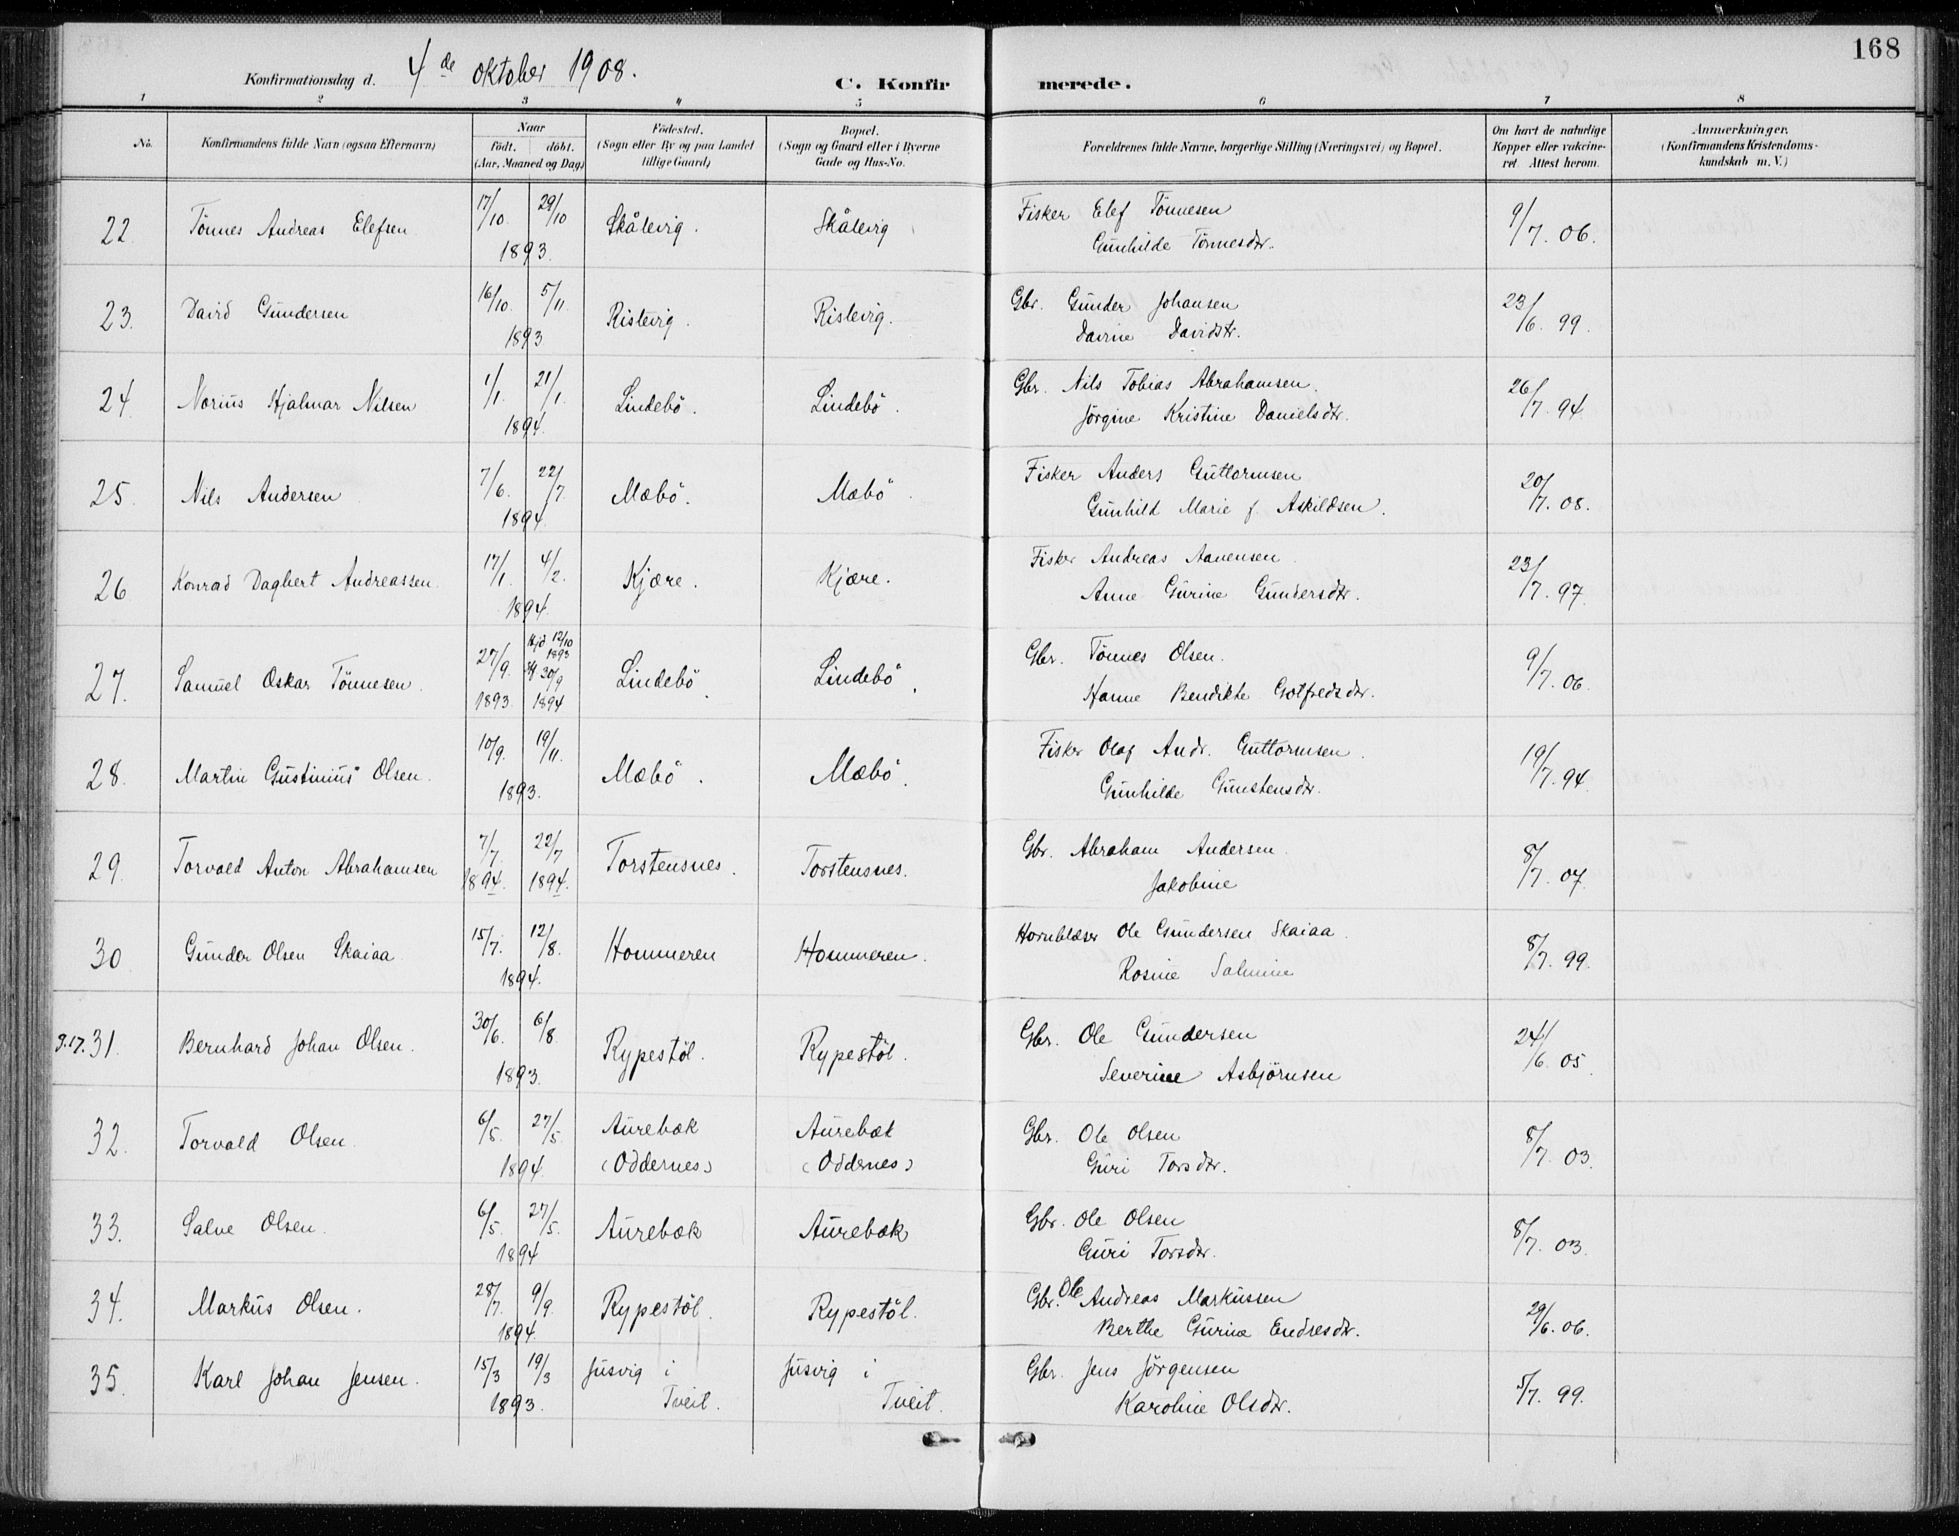 168
Konfirmationsdag d. 4de oktober 1908.
C. Konfirmerede.
1 2 3 4 5 6 7 8
No.
Konfirmandens fulde Navn (ogsaa Efternavn)
Naar
födt. döbt.
(Aar, Maaned og Dag)
Födested.
(Sogn eller By og paa Landet
tillige Gaard)
Bopæl.
(Sogn og Gaard eller i Byerne
Gade og Hus-No.
Forældrenes fulde Navne, borgerlige Stilling (Næringsvei) og Bopæl.
Om havt de naturlige
Kopper eller vakcine-
ret. Attest herom.
Anmærkninger.
(Konfirmandens Kristendoms-
kundskab m. V.)
22. Tönnes Andreas Elefsen 17/10. 29/10 Skålevig. Skålevig Fisker Elef Tönnesen 9/7. 06.
1893. Gunhilde Tönnesdtr.
23. David Gundersen 16/10. 5/11. Ristevig. Ristevig. Gbr. Gunder Johansen 23/6. 99.
1893 Davine Davidstr.
24. Norius Hjalmar Nilsen 1/1. 21/1. Lindebö. Lindebö. Gbr. Nils Tobias Abrahamsen. 26/7. 94.
1894. Jörgine Kristine Danielsdtr.
25. Nils Andersen 7/6. 22/7. Mæbö. Mæbö. Fisker Anders Guttormsen 20/7. 08.
1894. Gunhild Marie f. Askildsen.
26 Konrad Dagbert Andreassen. 17/1. 4/2. Kjære. Kjære. Fisker Andreas Aanensen. 23/7. 97.
1894. Anne Gurine Gundersdtr.
27. Samuel Oskar Tönnesen. 27/9. Hjd 12/10 1893 Lindebö. Lindebö. Gbr. Tönnes Olsen. 9/7. 06.
30/9
1893 1894 Hanne Bendikte Gotfredsdtr.
28. Martin Gustinius Olsen. 10/9. 19/11. Mæbö. Mæbö. Fisker Olaf Andr. Guttormsen. 19/7. 94.
1893. Gunhilde Gunstensdtr.
29. Torvald Anton Abrahamsen 7/7. 22/7 Torstensnes. Torstensnes. Gbr. Abraham Andersen. 8/7. 07.
1894. 1894. Jakobine
30 Gunder Olsen Skaiaa 15/7. 12/8. Hommeren Hommeren. Hornblæser Ole Gundersen Skaiaa. 8/7. 99.
1894. Rosine Salmine
31. Bernhard Johan Olsen. 30/6. 6/8. Rypestöl. Rypestöl. Gbr. Ole Gundersen 24/6. 05.
1893. Severine Asbjörnsen
32. Torvald Olsen. 6/5. 27/5. Aurebæk Aurebæk Gbr. Ole Olsen 8/7. 03.
1894 (Oddernes) (Oddernes) Guri Torsdtr.
33. Salve Olsen. 6/5. 27/5. Aurebæk Aurebæk Gbr. Ole Olsen 8/7. 03.
1894 Guri Torsdtr.
34. Markus Olsen. 28/7. 9/9. Rypestöl. Rypestöl. Gbr. Ole Andreas Markussen 29/6. 06.
1894. Berthe Gurine Endresdtr.
35. Karl Johan Jensen. 15/3 19/3 Jusvig i Jusvig i Gbr. Jens Jörgensen 5/7. 99.
1893. Tveit. Tveit. Karoline Olsdtr.